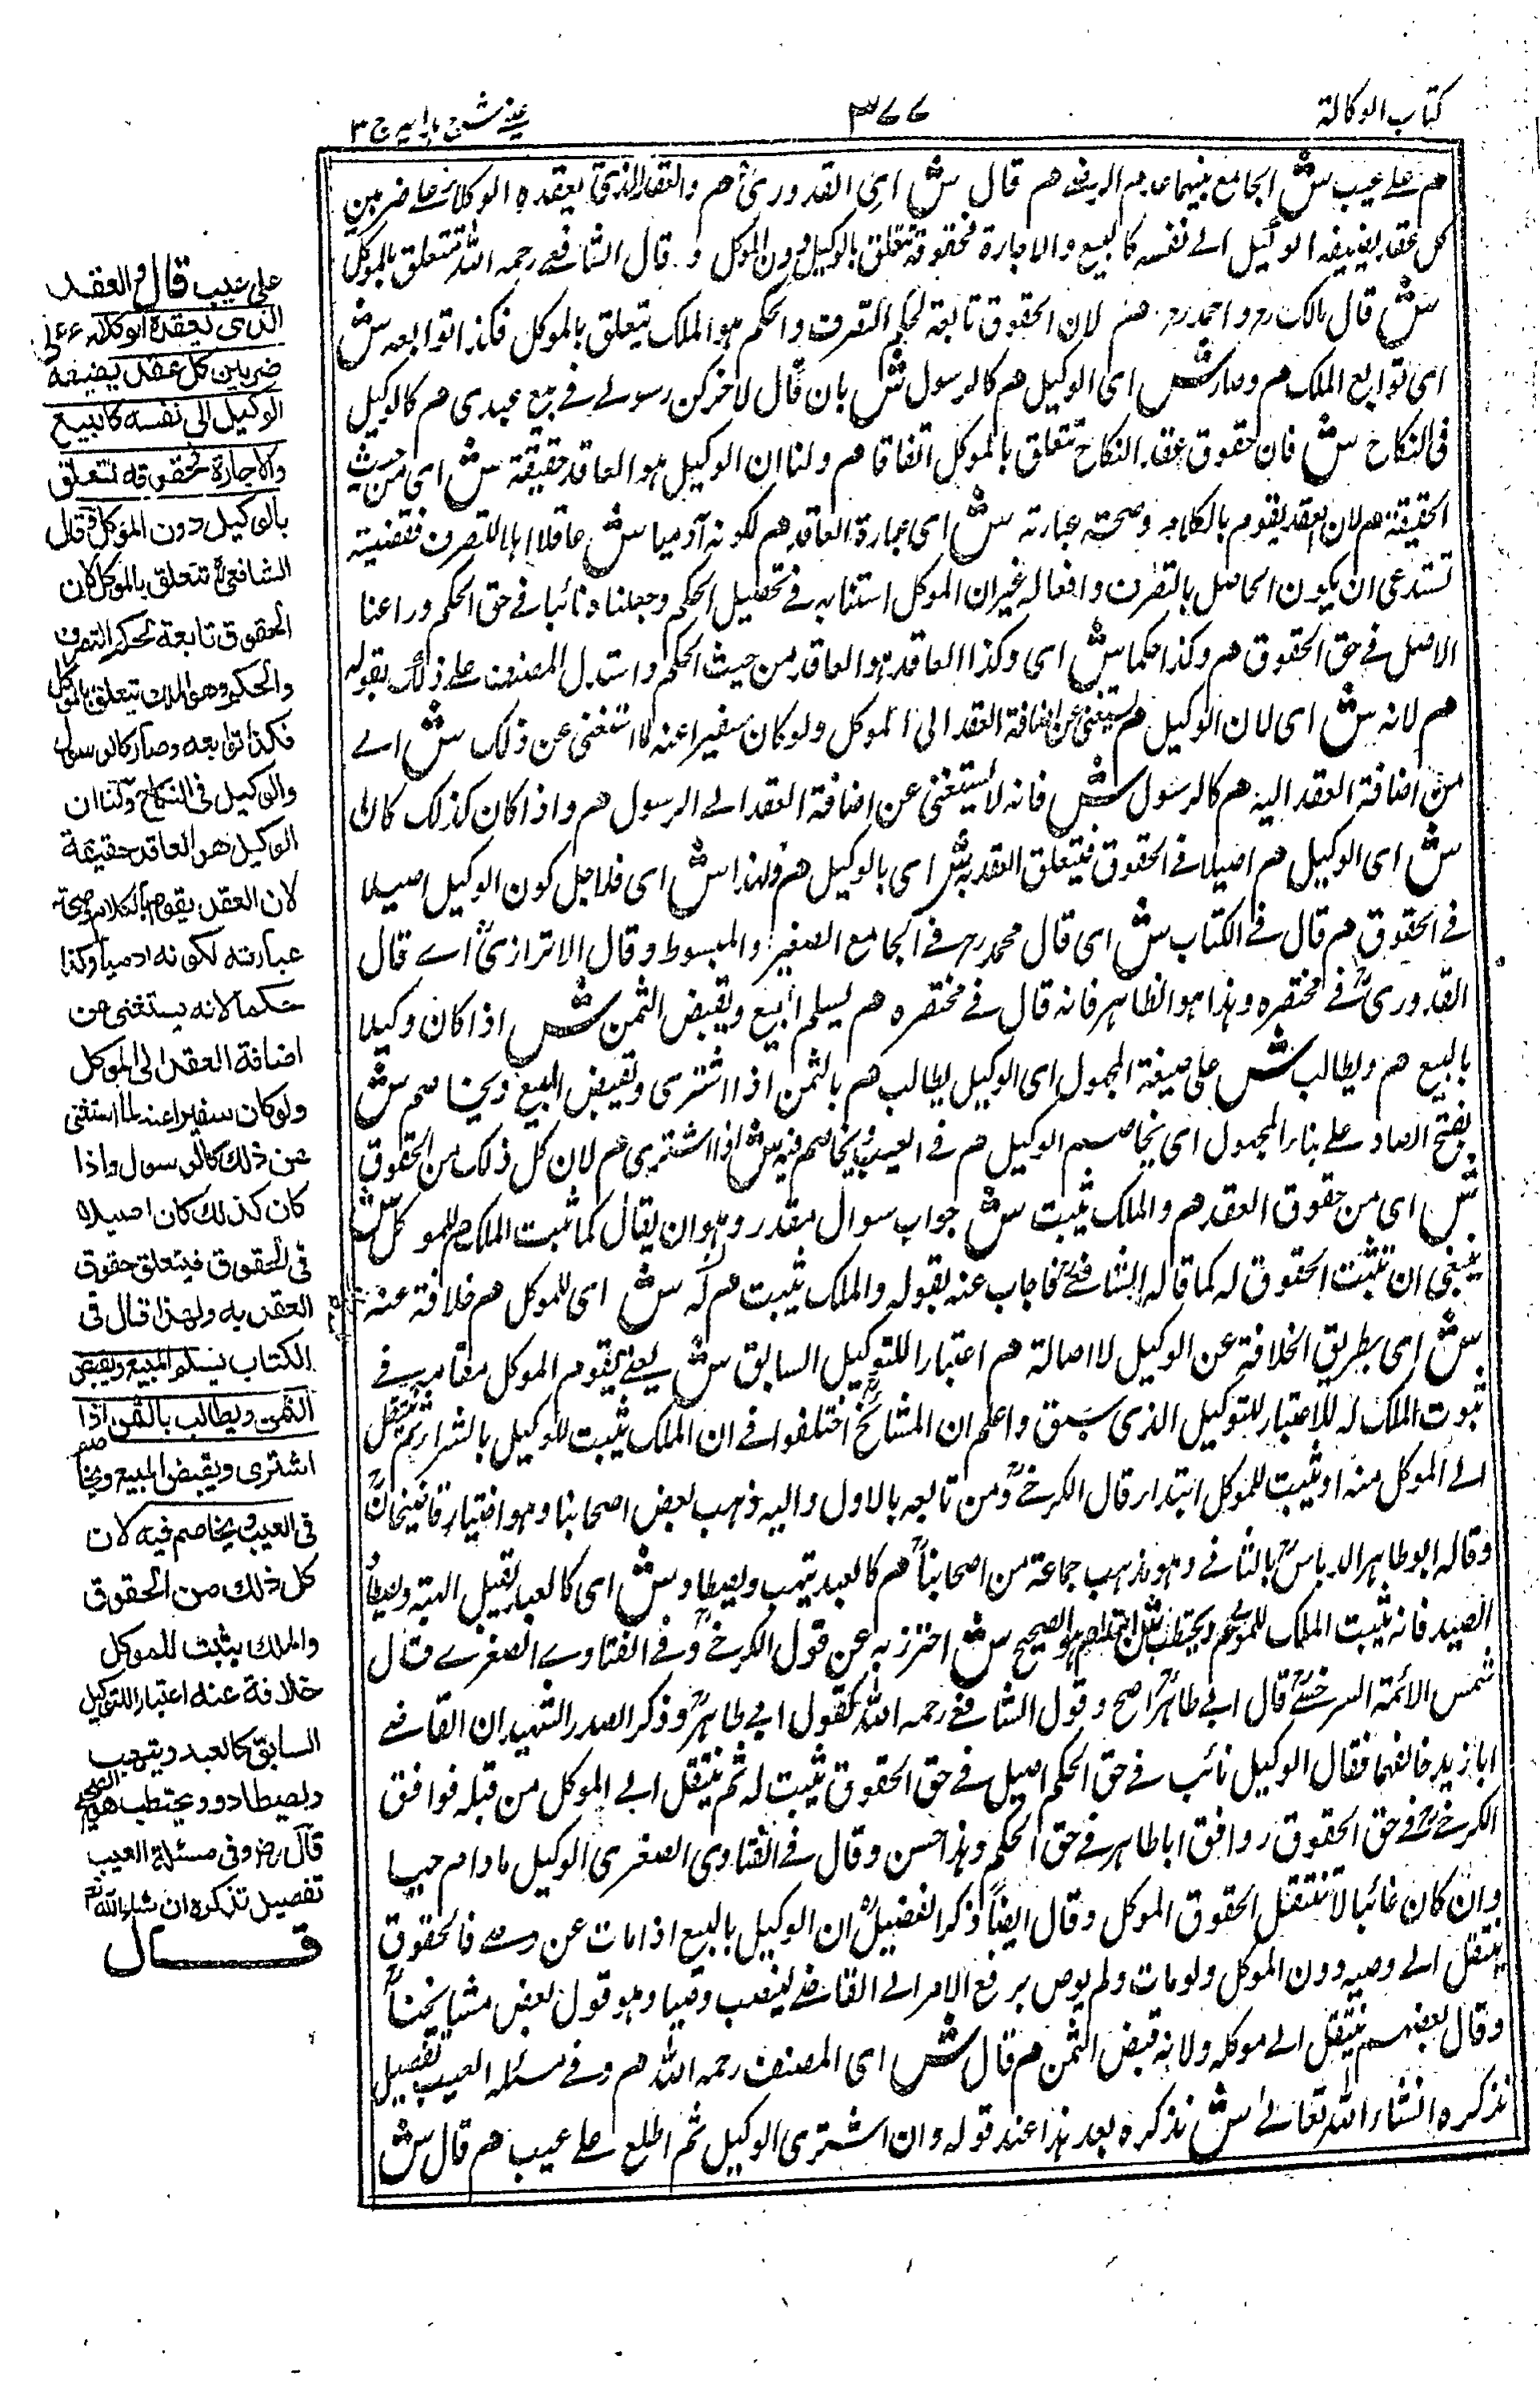 كتاب الوكالة
٣٦٦
عيني شرح هدايه ج ٣
هم على عيب ش الجامع بينهما عدم الرضى هم قال ش اى القدورىؒ هم والعقد الذى يعقده الوكلاء على ضربين
كل عقد يضيفه الوكيل الى نفسه كالبيع والاجارة فحقوقه تتعلق بالوكيل دون الموكل و قال الشافعى رحمه الله تتعلق بالموكل
ش قال مالك رح و احمد رح هم لان الحقوق تابعة لحكم التصرف والحكم هو الملك يتعلق بالموكل فكذا توابعه ش
اى توابع الملك هم وصار ش اى الوكيل هم كالرسول ش بان قال لاخر كن رسولى فى بيع عبدى هم كالوكيل
فى النكاح ش فان حقوق عقد النكاح تتعلق بالموكل اتفاقا هم ولنا ان الوكيل هو العاقد حقيقة ش اى من حيث
الحقيقة هم لان العقد يقوم بالكلام وصحة عبارته ش اى عبارة العاقد هم لكونه آدميا ش عاقلا اهلا للتصرف فقضيته
تستدعى ان يكون الحاصل بالتصرف وافعاله غير ان الموكل استنابه فى تحصيل الحكم وجعلناه نائبا فى حق الحكم وراعنا
الاصل فى حق الحقوق هم وكذا حكما ش اى وكذا العاقد هو العاقد من حيث الحكم واستدل المصنف على ذلك بقوله
هم لانه ش اى لان الوكيل هم يستغنى عن اضافة العقد الى الموكل ولو كان سفيرا عنه لما استغنى عن ذلك ش اى
من اضافة العقد اليه هم كالرسول ش فانه لا يستغنى عن اضافة العقد الى الرسول هم واذا كان كذلك كان
ش اى الوكيل هم اصيلا فى الحقوق فيتعلق العقد به ش اى بالوكيل هم ولهذا ش اى فلاجل كون الوكيل اصيلا
فى الحقوق هم قال فى الكتاب ش اى قال محمد رح فى الجامع الصغير والمبسوط وقال الاترازىؒ اى قال
القدورىؒ فى مختصره وهذا هو الظاهر فانه قال فى مختصره هم يسلم المبيع ويقبض الثمن ش اذا كان وكيلا
بالبيع هم ويطالب ش على صيغة المجهول اى الوكيل يطالب هم بالثمن اذا اشترى ويقبض المبيع ويخاصم ش
بفتح الصاد على بناء المجهول اى يخاصم الوكيل هم فى العيب ويخاصم فيه ش اذا اشترى هم لان كل ذلك من الحقوق
ش اى من حقوق العقد هم والملك يثبت ش جواب سوال مقدر وهو ان يقال كما ثبت الملك هم للموكل ش
ينبغى ان تثبت الحقوق له كما قاله الشافعىؒ فاجاب عنه بقوله والملك يثبت هم له ش اى للموكل هم خلافة عنه
ش اى بطريق الخلافة عن الوكيل لا اصالة هم اعتبارا للتوكيل السابق ش يعنى يقوم الموكل مقامه فى
ثبوت الملك له للاعتبار للتوكيل الذى سبق واعلم ان المشائخؒ اختلفوا فى ان الملك يثبت للوكيل بالشراء ثم ينتقل
الى الموكل منه او يثبت للموكل ابتداء قال الكرخىؒ ومن تابعه بالاول واليه ذهب بعض اصحابنا وهو اختيار قاضيخانؒ
وقاله ابو طاهر الدباسؒ بالثانى وهو مذهب جماعة من اصحابناؒ هم كالعبد يتهب ويصطاد ش اى كالعبد يقبل الهبة ويصطاد
الصيد فانه يثبت الملك للمولى هم ويحتطب هو الصحيح ش احترز به عن قول الكرخىؒ وفى الفتاوى الصغرى قال
شمس الائمة السرخسىؒ قال ابى طاهرؒ اصح وقول الشافعى رحمه الله كقول ابى طاهرؒ وذكر الصدر الشهيد ان القاضى
ابا زيد خالفهما فقال الوكيل نائب فى حق الحكم اصيل فى حق الحقوق تثبت له ثم ينتقل الى الموكل من قبله فوافق
الكرخىؒ فى حق الحقوق و وافق ابا طاهر فى حق الحكم وهذا حسن وقال فى الفتاوى الصغرى الوكيل مادام حيا
وان كان غائبا لا تنتقل الحقوق الموكل وقال ايضا ذكر الفضيلىؒ ان الوكيل بالبيع اذا مات عن وصى فالحقوق
ينتقل الى وصيه دون الموكل ولو مات ولم يوص يرفع الامر الى القاضى لينصب وصيا وهو قول بعض مشايخناؒ
وقال بعضهم ينتقل الى موكله ولانه قبض الثمن هم قال ش اى المصنف رحمه الله هم وفى مسئله العيب تفصيل
نذكره انشاء الله تعالى ش نذكره بعد هذا عند قوله وان اشترى الوكيل ثم اطلع على عيب هم قال ش
على عيب قال والعقد
الذى يعقده الوكلاء على
ضربين كل عقد يضيفه
الوكيل الى نفسه كالبيع
والاجارة فحقوقه تتعلق
بالوكيل دون الموكل وقال
الشافعىؒ تتعلق بالموكل لان
الحقوق تابعة لحكم التصرف
والحكم وهو الملك يتعلق بالموكل
فكذا توابعه وصار كالرسول
والوكيل فى النكاح ولنا ان
الوكيل هو العاقد حقيقة
لان العقد يقوم بالكلام وصحة
عبارته لكونه ادميا وكذا
حكما لانه يستغنى عن
اضافة العقد الى الموكل
ولو كان سفيرا عنه لما استغنى
عن ذلك كالرسول واذا
كان كذلك كان اصيلا
فى الحقوق فيتعلق حقوق
العقد به ولهذا قال فى
الكتاب يسلم المبيع ويقبض
الثمن ويطالب بالثمن اذا
اشترى ويقبض المبيع ويخاصم
فى العيب ويخاصم فيه لان
كل ذلك من الحقوق
والملك يثبت للموكل
خلافة عنه اعتبارا للتوكيل
السابق كالعبد ويتهب
ويصطاد ويحتطب هو الصحيح
قال رضؔ وفى مسئلة العيب
تفصيل نذكره ان شاء الله تعم
قال